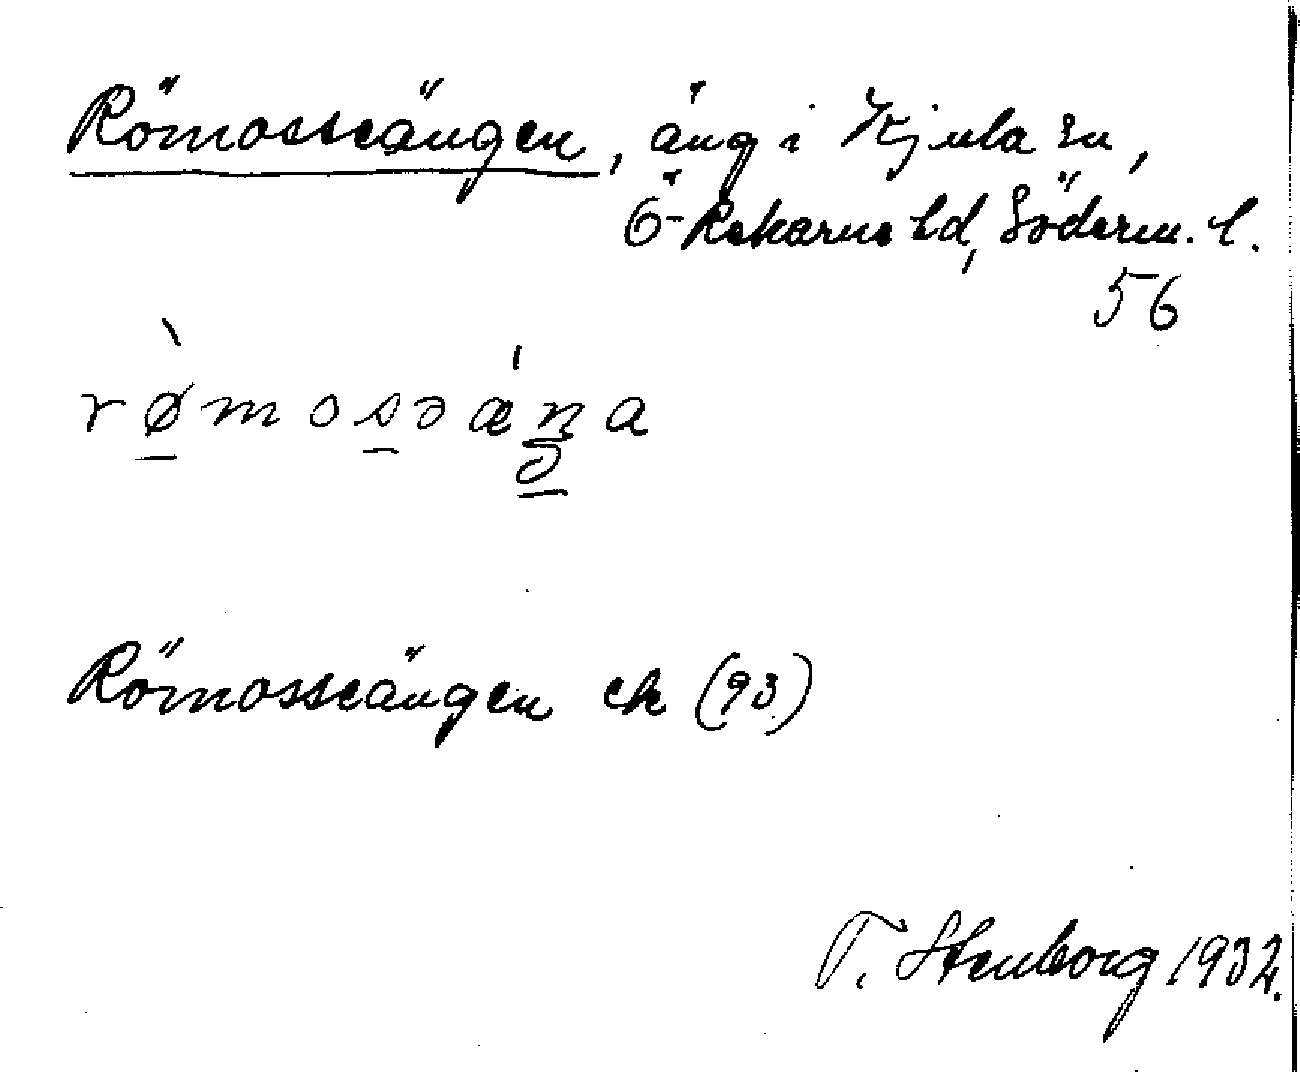 Römosseängen, äng i Kjula sn,
Ö-Rekarne hd, Söderm. l.
56
rø̀mosəǽŋa
Römosseängen ek (93)
T. Stenborg 1932.